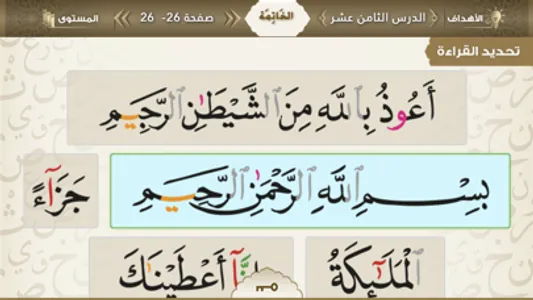 الأهداف الدرس الثامن عشر الخَاتِمَة صفحة 26- 26 المستوى
تحديد القراءة
أَعُوذُ بِٱللَّهِ مِنَ ٱلشَّيْطَٰنِ ٱلرَّجِيمِ
بِسْمِ ٱللَّهِ ٱلرَّحْمَٰنِ ٱلرَّحِيمِ جَزَآءً
ٱلْمَلَٰٓئِكَةُ إِنَّآ أَعْطَيْنَٰكَ